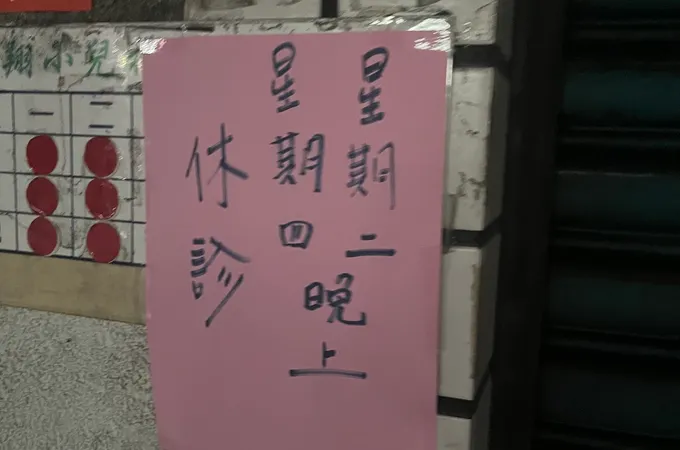 翔小兒
一
二
星期二
星期四
晚上
休診